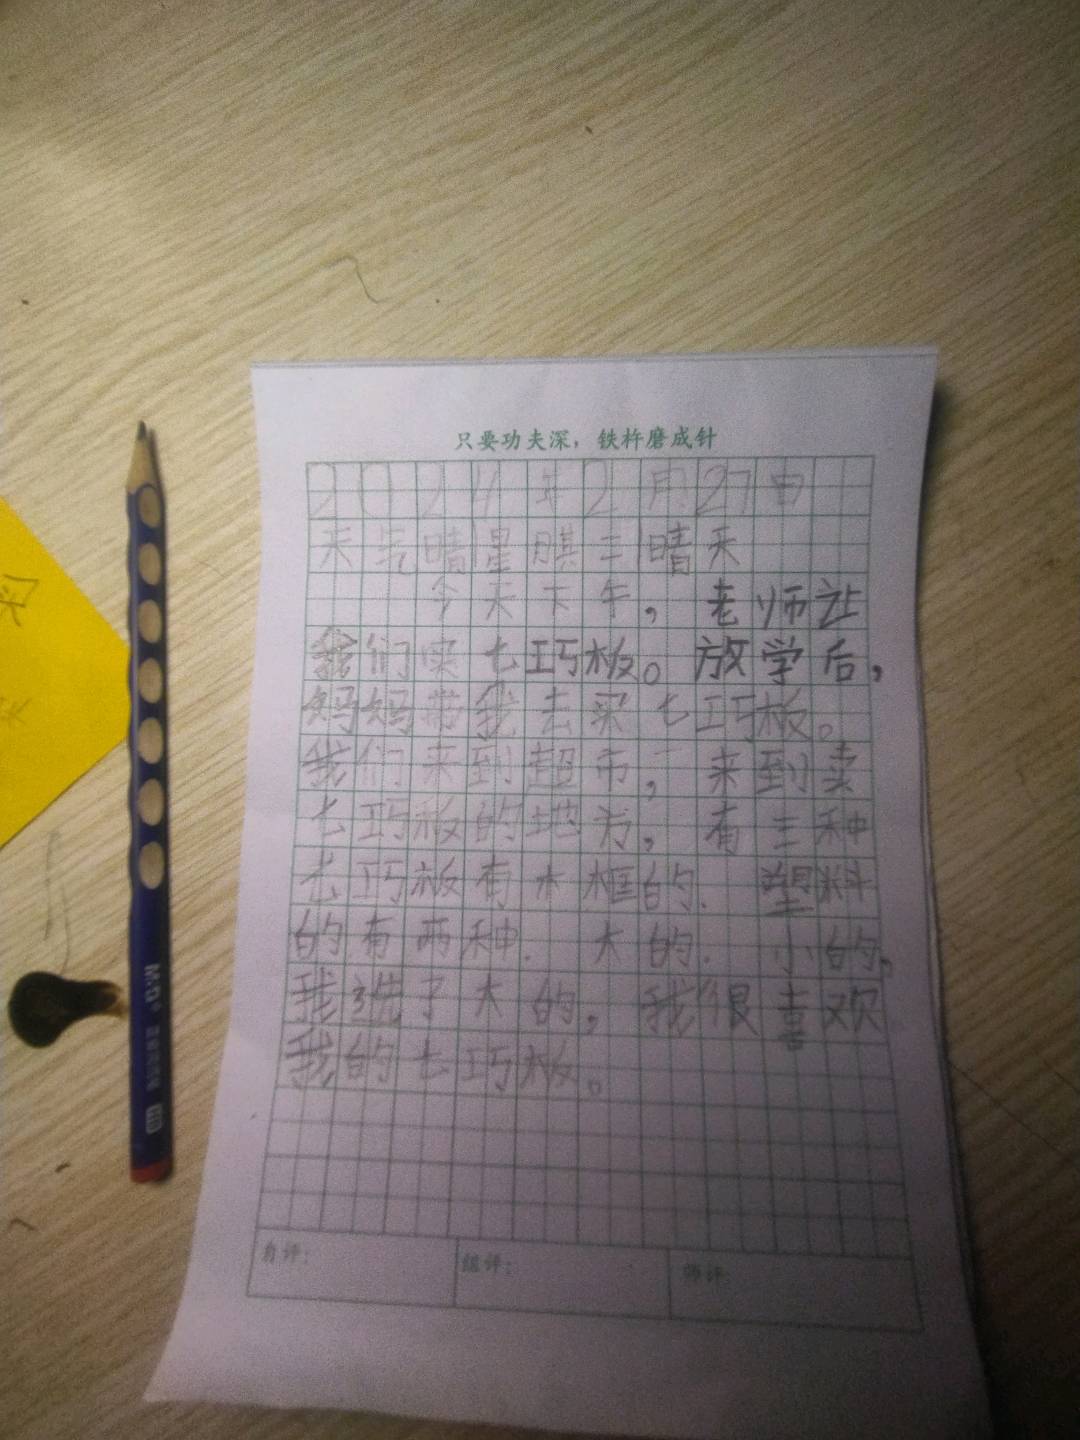 只要功夫深，铁杵磨成针
2024年2月27日
天气晴星期三晴天
今天下午，老师让
我们买七巧板。放学后，
妈妈带我去买七巧板。
我们来到超市，来到卖
七巧板的地方，有三种
七巧板有木框的.塑料
的有两种.大的.小的，
我选了大的，我很喜欢
我的七巧板。
自评：
组评：
师评：
M&G